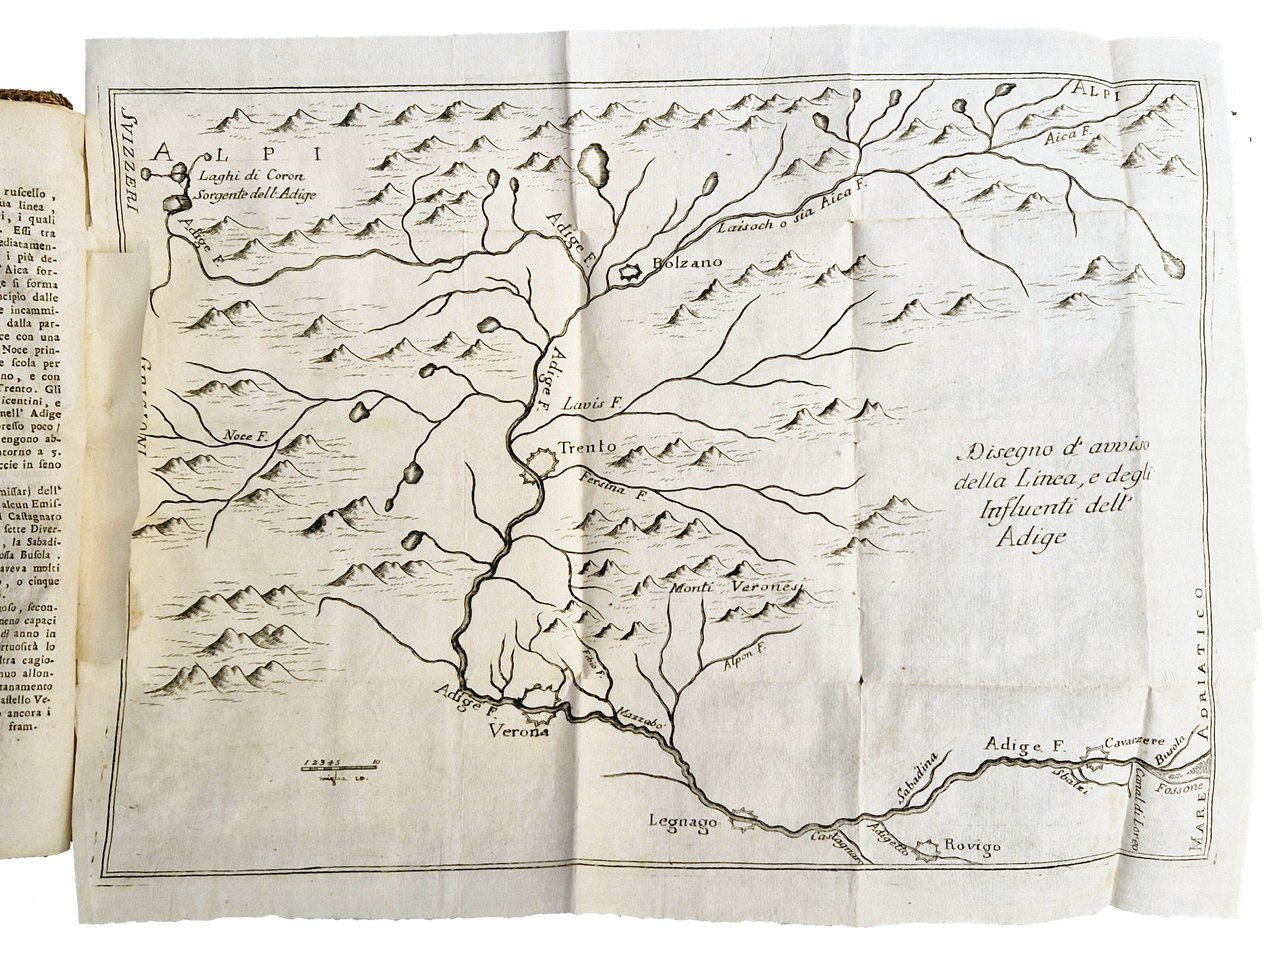 ruscello ,
ua linea ,
i , i quali
. Essi tra
ediatamen-
i più de-
'Aica for-
ge si forma
ncipio dalle
e incammi-
dalla par-
ce con una
Noce prin-
e scola per
no , e con
Trento. Gli
icentini, e
nell' Adige
presso poco/
engono ab-
ntorno a 5.
ccie in seno
missar) dell'
alcun Emis-
i Castagnaro
sette Diver-
, la Sabadi-
ossa Busola .
areva molti
, o cinque
noso, secon-
meno capaci
di anno in
rtuosità lo
ltra cagio-
nuo allon-
tanamento
astello Ve-
ancora i
fram-
SVIZZERI
ALPI
Laghi di Coron
Sorgente dell'Adige
Adige F.
Adige F.
Bolzano
Laisoch o sia Aica F.
Aica F.
ALPI
GRIGIONI
Adige F.
Lavis F
Noce F.
Trento
Fersina F.
Disegno d' avviso
della Linea, e degli
Influenti dell'
Adige
Monti Veronesi
Alpon F.
Adige F.
Verona
Mazzabo
1 2 3 4 5 10
miglia 10.
Legnago
Castagnar
Adigetto
Rovigo
Sabadina
Adige F.
Cavarzere
Sbalzi
Canal di Loreo
Busola
Fossone
MARE ADRIATICO